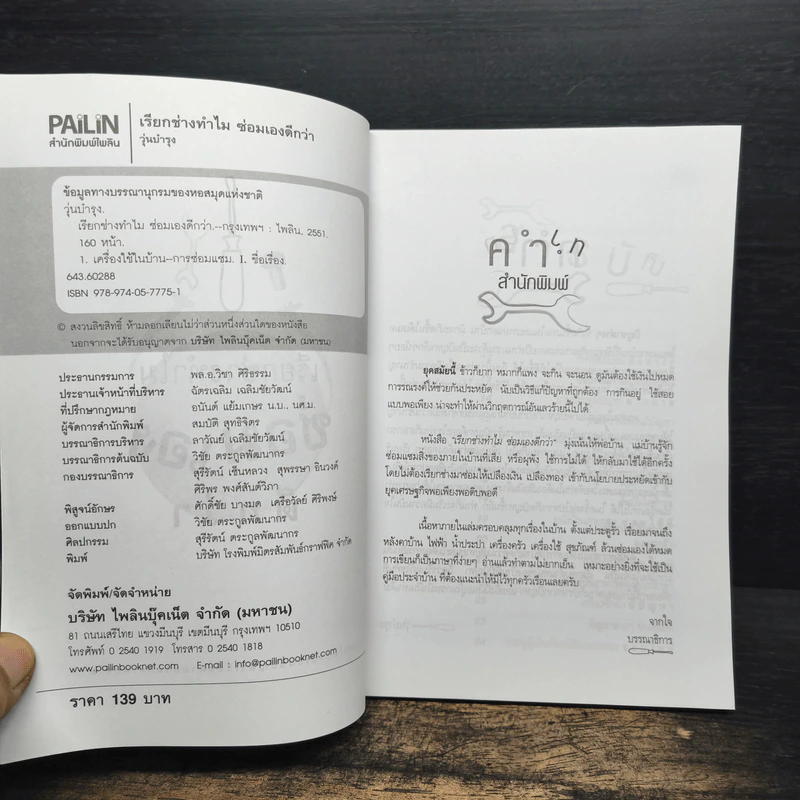 PAiLiN
สำนักพิมพ์ไพลิน
เรียกช่างทำไม ซ่อมเองดีกว่า
วุ่นบำรุง
ข้อมูลทางบรรณานุกรมของหอสมุดแห่งชาติ
วุ่นบำรุง.
เรียกช่างทำไม ซ่อมเองดีกว่า.--กรุงเทพฯ : ไพลิน, 2551.
160 หน้า.
1. เครื่องใช้ในบ้าน--การซ่อมแซม. I. ชื่อเรื่อง.
643.60288
ISBN 978-974-05-7775-1
© สงวนลิขสิทธิ์ ห้ามลอกเลียนไม่ว่าส่วนหนึ่งส่วนใดของหนังสือ
นอกจากจะได้รับอนุญาตจาก บริษัท ไพลินบุ๊คเน็ต จำกัด (มหาชน)
ประธานกรรมการ พล.อ.วิชา ศิริธรรม
ประธานเจ้าหน้าที่บริหาร ฉัตรเฉลิม เฉลิมชัยวัฒน์
ที่ปรึกษากฎหมาย อนันต์ แย้มเกษร น.บ., นศ.ม.
ผู้จัดการสำนักพิมพ์ สมบัติ สุทธิจิตร
บรรณาธิการบริหาร ลาวัณย์ เฉลิมชัยวัฒน์
บรรณาธิการต้นฉบับ วิชัย ตระกูลพัฒนากร
กองบรรณาธิการ สุรีรัตน์ เซ็นหลวง สุพรรษา อินวงค์
ศิริพร พงศ์สันติวิภา
พิสูจน์อักษร ศักดิ์ชัย บางมด เครือวัลย์ ศิริพงษ์
ออกแบบปก วิชัย ตระกูลพัฒนากร
ศิลปกรรม สุรีรัตน์ ตระกูลพัฒนากร
พิมพ์ บริษัท โรงพิมพ์มิตรสัมพันธ์กราฟฟิค จำกัด
จัดพิมพ์/จัดจำหน่าย
บริษัท ไพลินบุ๊คเน็ต จำกัด (มหาชน)
81 ถนนเสรีไทย แขวงมีนบุรี เขตมีนบุรี กรุงเทพฯ 10510
โทรศัพท์ 0 2540 1919 โทรสาร 0 2540 1818
www.pailinbooknet.com E-mail : info@pailinbooknet.com
ราคา 139 บาท
สำนักพิมพ์
ยุคสมัยนี้ ข้าวก็ยาก หมากก็แพง จะกิน จะนอน ดูมันต้องใช้เงินไปหมด
การรณรงค์ให้ช่วยกันประหยัด นับเป็นวิธีแก้ปัญหาที่ถูกต้อง การกินอยู่ ใช้สอย
แบบพอเพียง น่าจะทำให้ผ่านวิกฤตการณ์อันเลวร้ายนี้ไปได้
หนังสือ "เรียกช่างทำไม ซ่อมเองดีกว่า" มุ่งเน้นให้พ่อบ้าน แม่บ้านรู้จัก
ซ่อมแซมสิ่งของภายในบ้านที่เสีย หรือผุพัง ใช้การไม่ได้ ให้กลับมาใช้ได้อีกครั้ง
โดยไม่ต้องเรียกช่างมาซ่อมให้เปลืองเงิน เปลืองทอง เข้ากับนโยบายประหยัดเข้ากับ
ยุคเศรษฐกิจพอเพียงพอดิบพอดี
เนื้อหาภายในเล่มครอบคลุมทุกเรื่องในบ้าน ตั้งแต่ประตูรั้ว เรื่อยมาจนถึง
หลังคาบ้าน ไฟฟ้า น้ำประปา เครื่องครัว เครื่องใช้ สุขภัณฑ์ ล้วนซ่อมเองได้หมด
การเขียนก็เป็นภาษาที่ง่ายๆ อ่านแล้วทำตามไม่ยากเย็น เหมาะอย่างยิ่งที่จะใช้เป็น
คู่มือประจำบ้าน ที่ต้องแนะนำให้มีไว้ทุกครัวเรือนเลยครับ
จากใจ
บรรณาธิการ